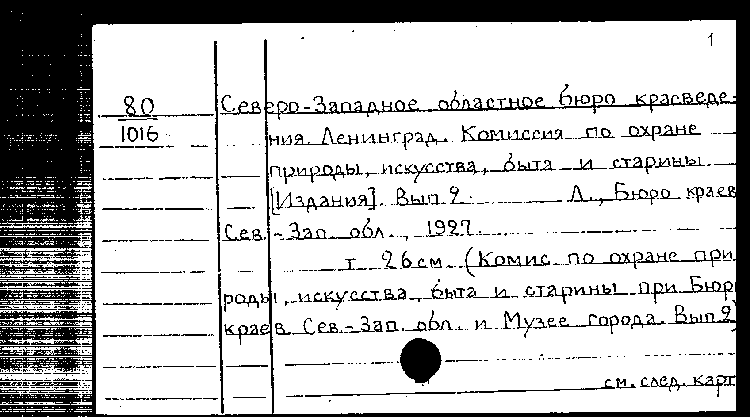 1
80
1016
Северо-Западное областное бюро красведе-
ния. Ленинград. Комиссия по охране
природы, искусства, быта и старины
[Издания]. Вып. 2. Л., Бюро краев
Сев.-Зап. обл., 1927.
т. 26 см. (Комис. по охране при
роды, искусства, быта и старины при Бюр
краев. Сев.-Зап. обл. и Музее города. Вып. 2)
см. след. карт